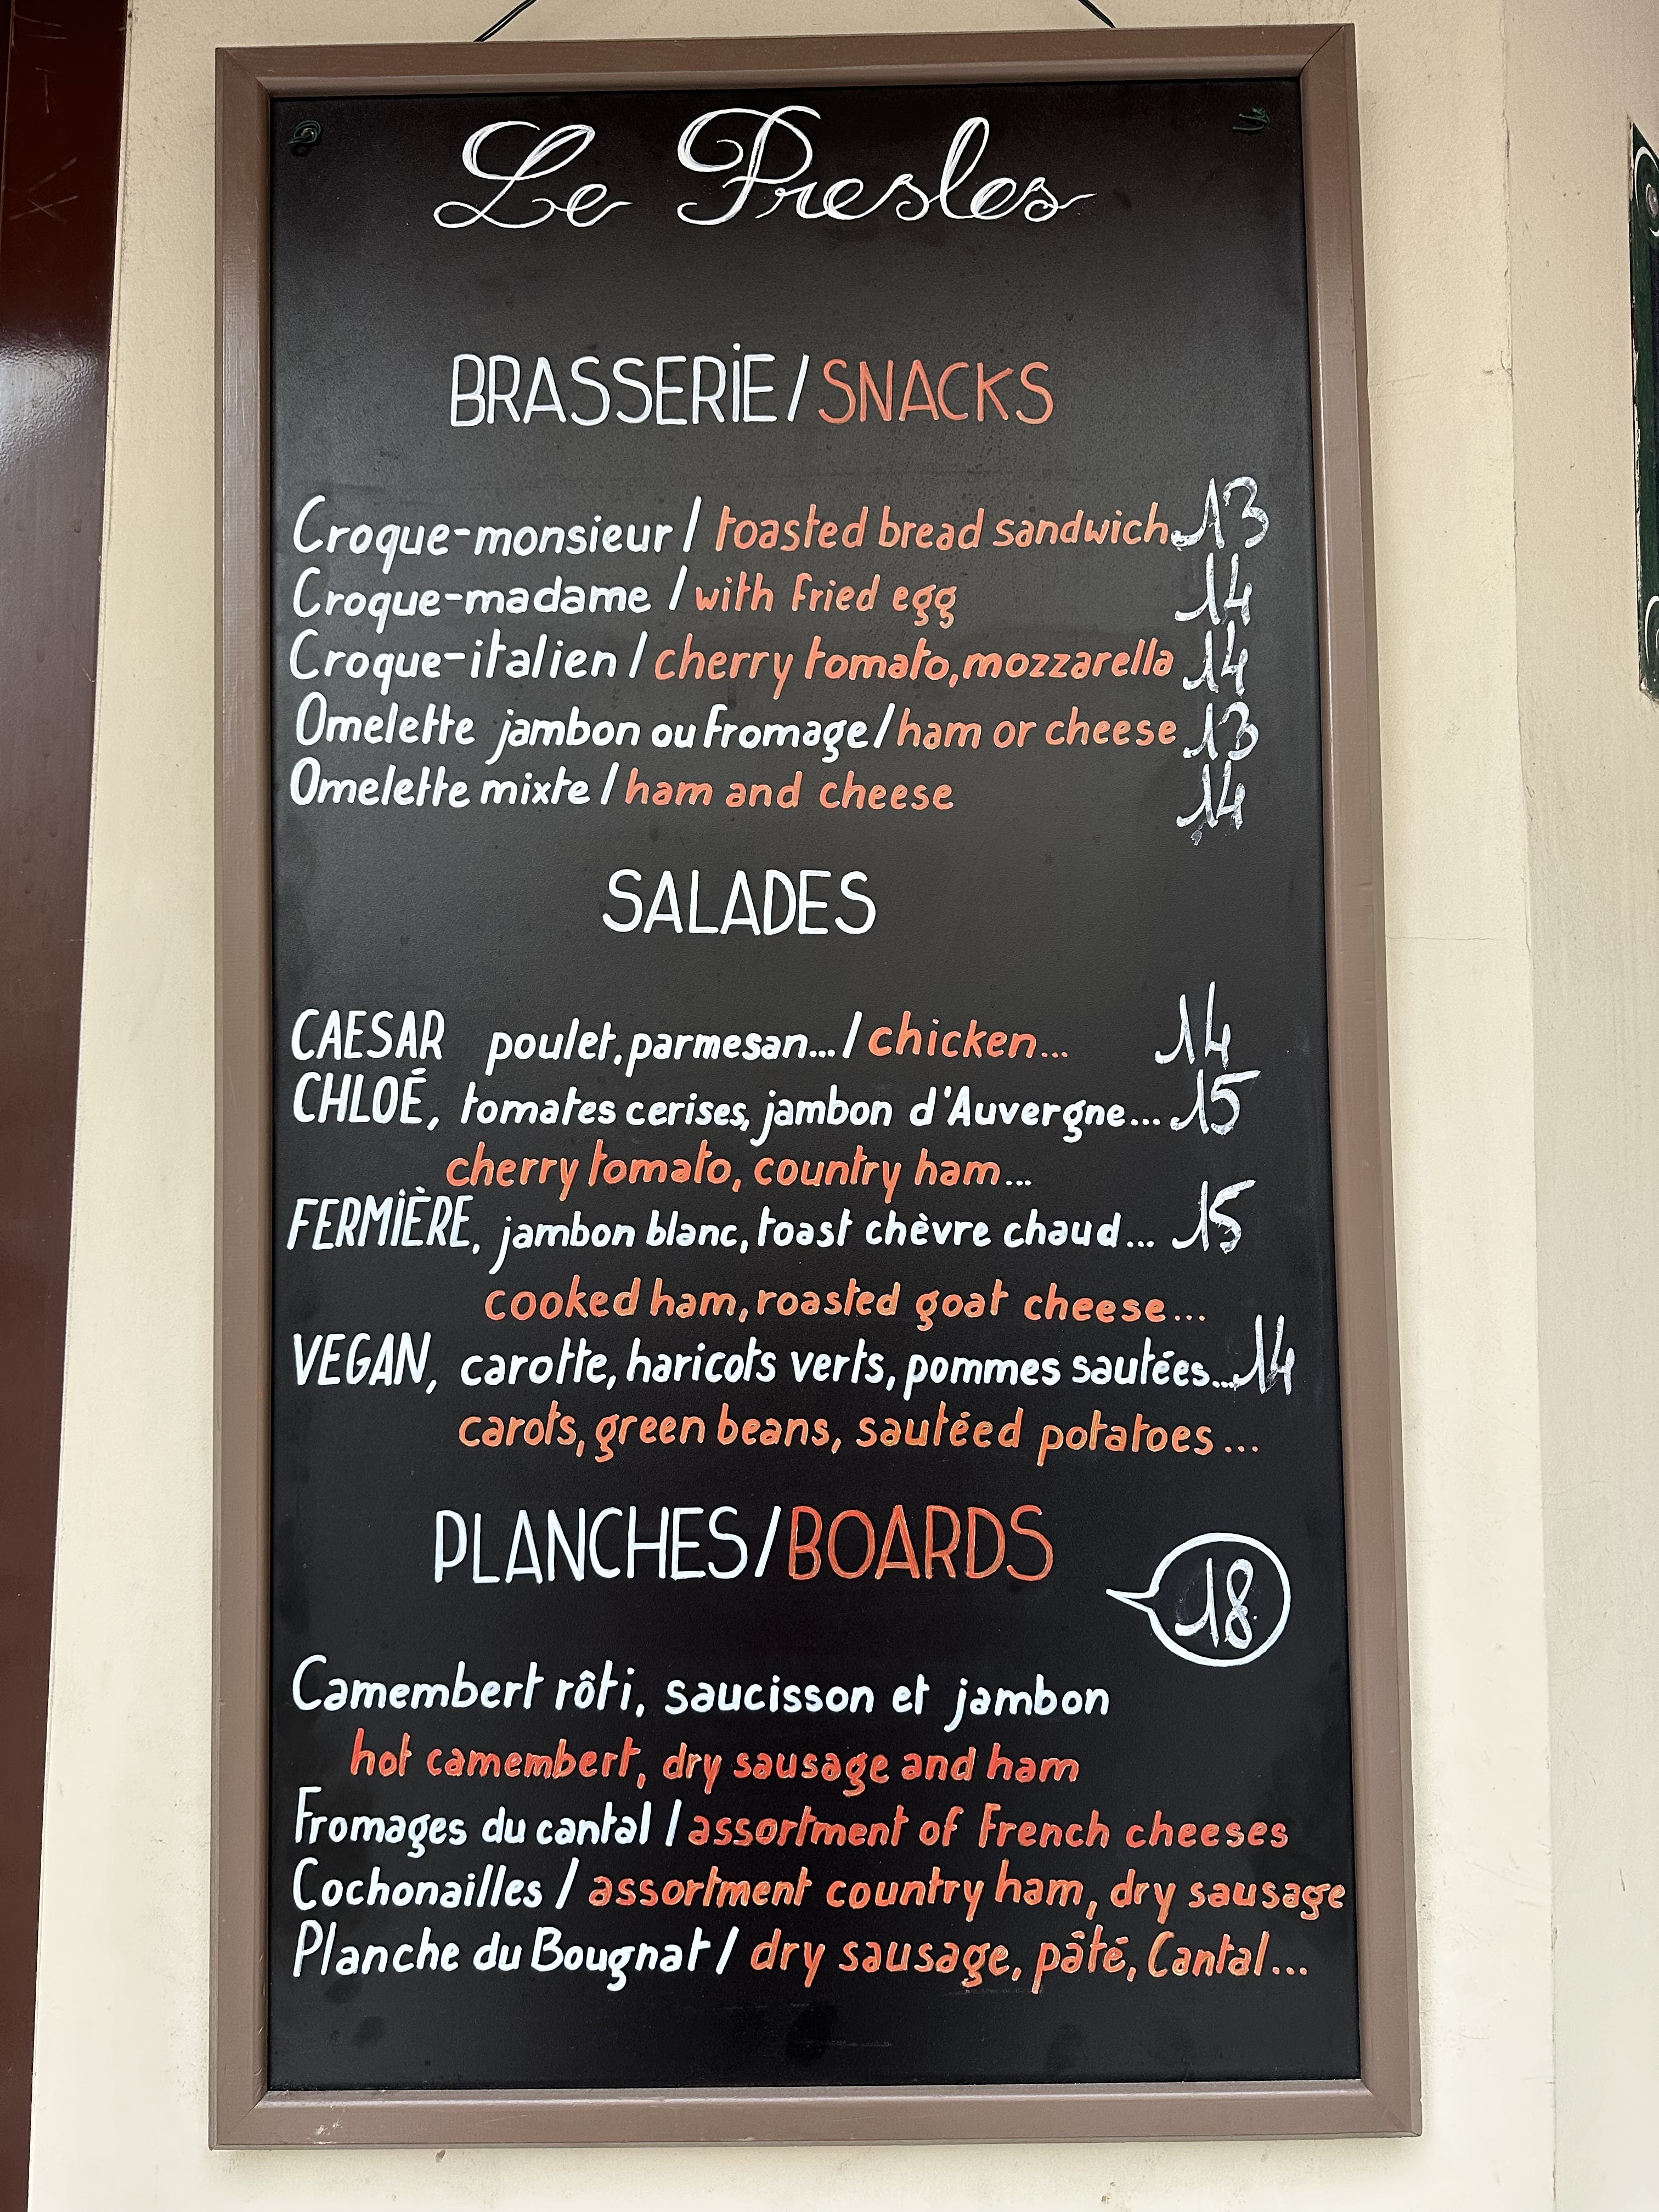 Le Presles
BRASSERIE/SNACKS
Croque-monsieur / toasted bread sandwich 13
Croque-madame / with fried egg 14
Croque-italien / cherry tomato, mozzarella 14
Omelette jambon ou fromage / ham or cheese 13
Omelette mixte / ham and cheese 14
SALADES
CAESAR poulet, parmesan... / chicken... 14
CHLOÉ, tomates cerises, jambon d'Auvergne... 15
cherry tomato, country ham...
FERMIÈRE, jambon blanc, toast chèvre chaud... 15
cooked ham, roasted goat cheese...
VEGAN, carotte, haricots verts, pommes sautées... 14
carots, green beans, sautéed potatoes...
PLANCHES/BOARDS
18
Camembert rôti, saucisson et jambon
hot camembert, dry sausage and ham
Fromages du cantal / assortment of French cheeses
Cochonailles / assortment country ham, dry sausage
Planche du Bougnat / dry sausage, pâté, Cantal...